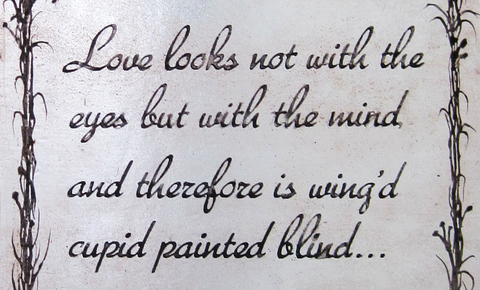 Love looks not with the
eyes but with the mind
and therefore is wing'd
cupid painted blind...